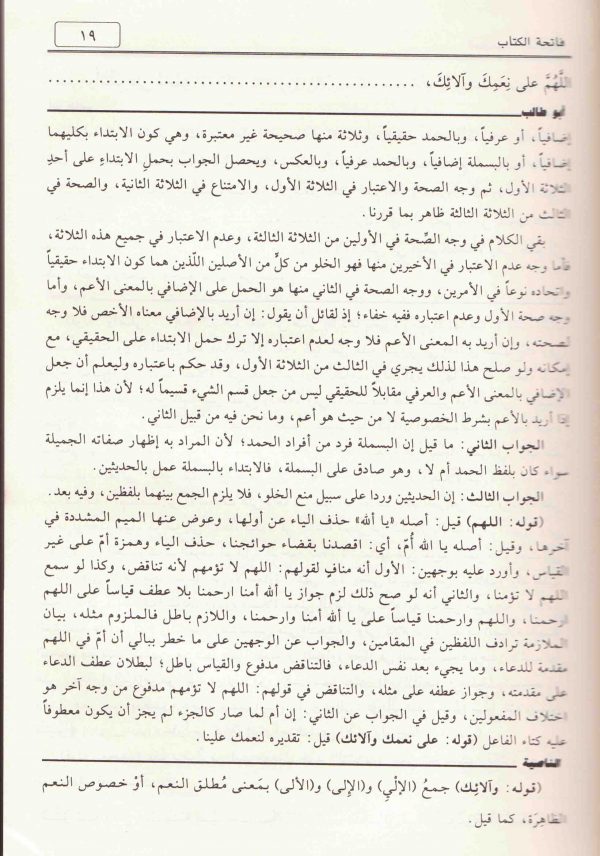 فاتحة الكتاب
١٩
اللَّهُمَّ على نِعَمِكَ وآلائِكَ، ..................................................
أبو طالب
إضافياً، أو عرفياً، وبالحمد حقيقياً، وثلاثة منها صحيحة غير معتبرة، وهي كون الابتداء بكليهما
إضافياً، أو بالبسملة إضافياً، وبالحمد عرفياً، وبالعكس، ويحصل الجواب بحملِ الابتداءِ على أحدِ
الثلاثة الأول، ثم وجه الصحة والاعتبار في الثلاثة الأول، والامتناع في الثلاثة الثانية، والصحة في
الثالث من الثلاثة الثالثة ظاهر بما قررنا.
بقي الكلام في وجه الصِّحة في الأولين من الثلاثة الثالثة، وعدم الاعتبار في جميع هذه الثلاثة،
فأما وجه عدم الاعتبار في الأخيرين منها فهو الخلو من كلٍّ من الأصلين اللّذين هما كون الابتداء حقيقياً
واتحاده نوعاً في الأمرين، ووجه الصحة في الثاني منها هو الحمل على الإضافي بالمعنى الأعم، وأما
وجه صحة الأول وعدم اعتباره ففيه خفاء؛ إذ لقائل أن يقول: إن أريد بالإضافي معناه الأخص فلا وجه
لصحته، وإن أريد به المعنى الأعم فلا وجه لعدم اعتباره إلا ترك حمل الابتداء على الحقيقي، مع
إمكانه ولو صلح هذا لذلك يجري في الثالث من الثلاثة الأول، وقد حكم باعتباره وليعلم أن جعل
الإضافي بالمعنى الأعم والعرفي مقابلاً للحقيقي ليس من جعل قسم الشيء قسيماً له؛ لأن هذا إنما يلزم
إذا أريد بالأعم بشرط الخصوصية لا من حيث هو أعم، وما نحن فيه من قبيل الثاني.
الجواب الثاني: ما قيل إن البسملة فرد من أفراد الحمد؛ لأن المراد به إظهار صفاته الجميلة
سواء كان بلفظ الحمد أم لا، وهو صادق على البسملة، فالابتداء بالبسملة عمل بالحديثين.
الجواب الثالث: إن الحديثين وردا على سبيل منع الخلو، فلا يلزم الجمع بينهما بلفظين، وفيه بعد.
(قوله: اللهم) قيل: أصله «يا الله» حذف الياء عن أولها، وعوض عنها الميم المشددة في
آخرها، وقيل: أصله يا الله أُمّ، أي: اقصدنا بقضاء حوائجنا، حذف الياء وهمزة أمّ على غير
القياس، وأورد عليه بوجهين: الأول أنه منافٍ لقولهم: اللهم لا تؤمهم لأنه تناقض، وكذا لو سمع
اللهم لا تؤمنا، والثاني أنه لو صح ذلك لزم جواز يا الله أمنا ارحمنا بلا عطف قياساً على اللهم
ارحمنا، واللهم وارحمنا قياساً على يا الله أمنا وارحمنا، واللازم باطل فالملزوم مثله، بيان
الملازمة ترادف اللفظين في المقامين، والجواب عن الوجهين على ما خطر ببالي أن أمّ في اللهم
مقدمة للدعاء، وما يجيء بعد نفس الدعاء، فالتناقض مدفوع والقياس باطل؛ لبطلان عطف الدعاء
على مقدمته، وجواز عطفه على مثله، والتناقض في قولهم: اللهم لا تؤمهم مدفوع من وجه آخر هو
اختلاف المفعولين، وقيل في الجواب عن الثاني: إن أم لما صار كالجزء لم يجز أن يكون معطوفاً
عليه كتاء الفاعل (قوله: على نعمك وآلائك) قيل: تقديره لنعمك علينا.
الناصية
(قوله: وآلائِك) جمعُ (الإلْيِ) و(الإلى) و(الألى) بمَعنى مُطلق النعم، أوْ خصوص النعم
الظاهِرَة، كما قيل.